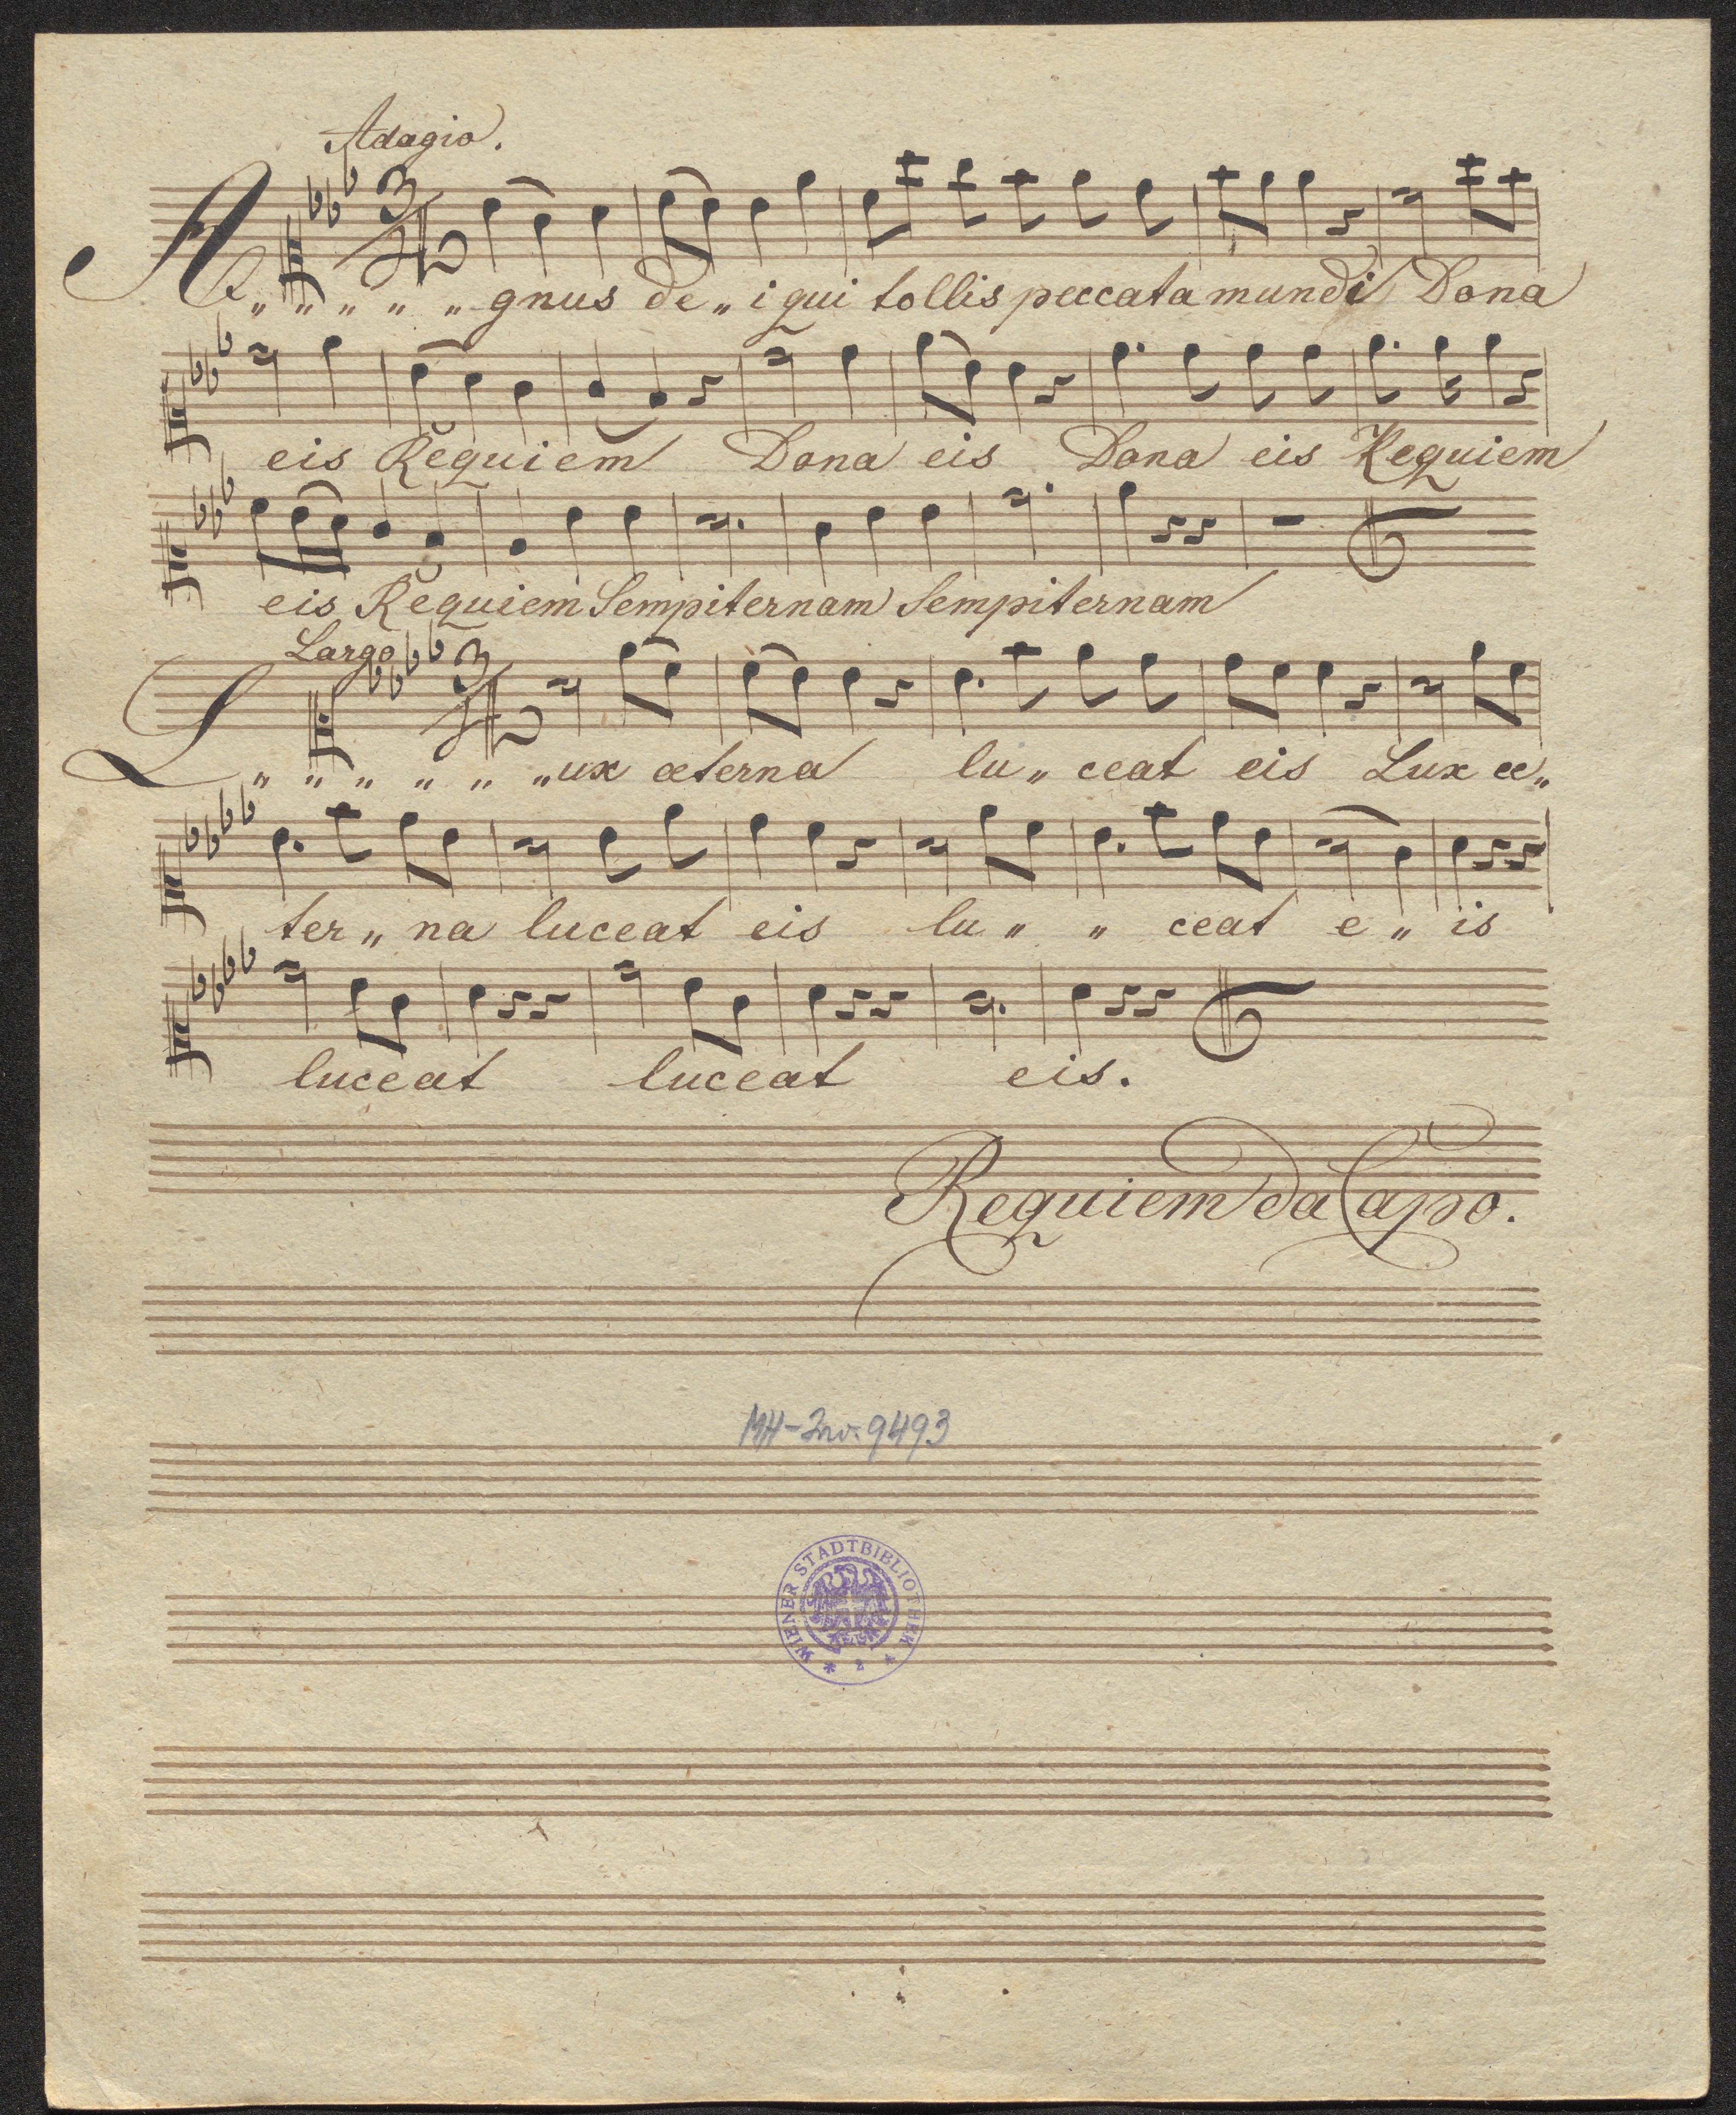 Adagio.
A „ „ „ „ „ gnus de „ i qui tollis peccata mundi Dona
eis Requiem Dona eis Dona eis Requiem
eis Requiem Sempiternam Sempiternam
Largo
L „ „ „ „ „ „ ux æterna lu „ ceat eis Lux æ „
ter „ na luceat eis lu „ „ ceat e „ is
luceat luceat eis.
Requiem da Capo.
MH-Inv. 9493
WIENER STADTBIBLIOTHEK